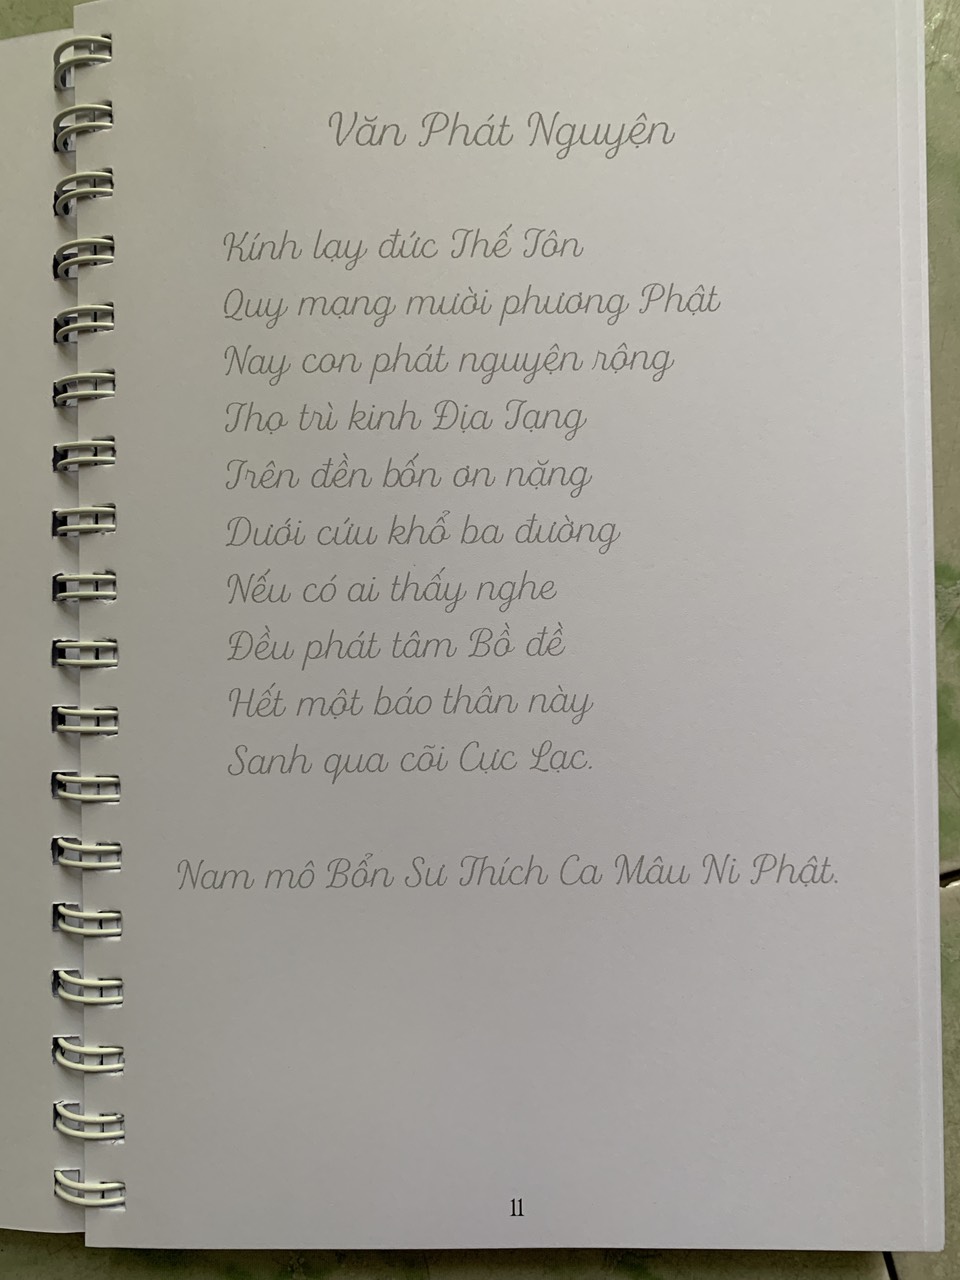 Văn Phát Nguyện
Kính lạy đức Thế Tôn
Quy mạng mười phương Phật
Nay con phát nguyện rộng
Thọ trì kinh Địa Tạng
Trên đền bốn ơn nặng
Dưới cứu khổ ba đường
Nếu có ai thấy nghe
Đều phát tâm Bồ đề
Hết một báo thân này
Sanh qua cõi Cực Lạc.
Nam mô Bổn Sư Thích Ca Mâu Ni Phật.
11